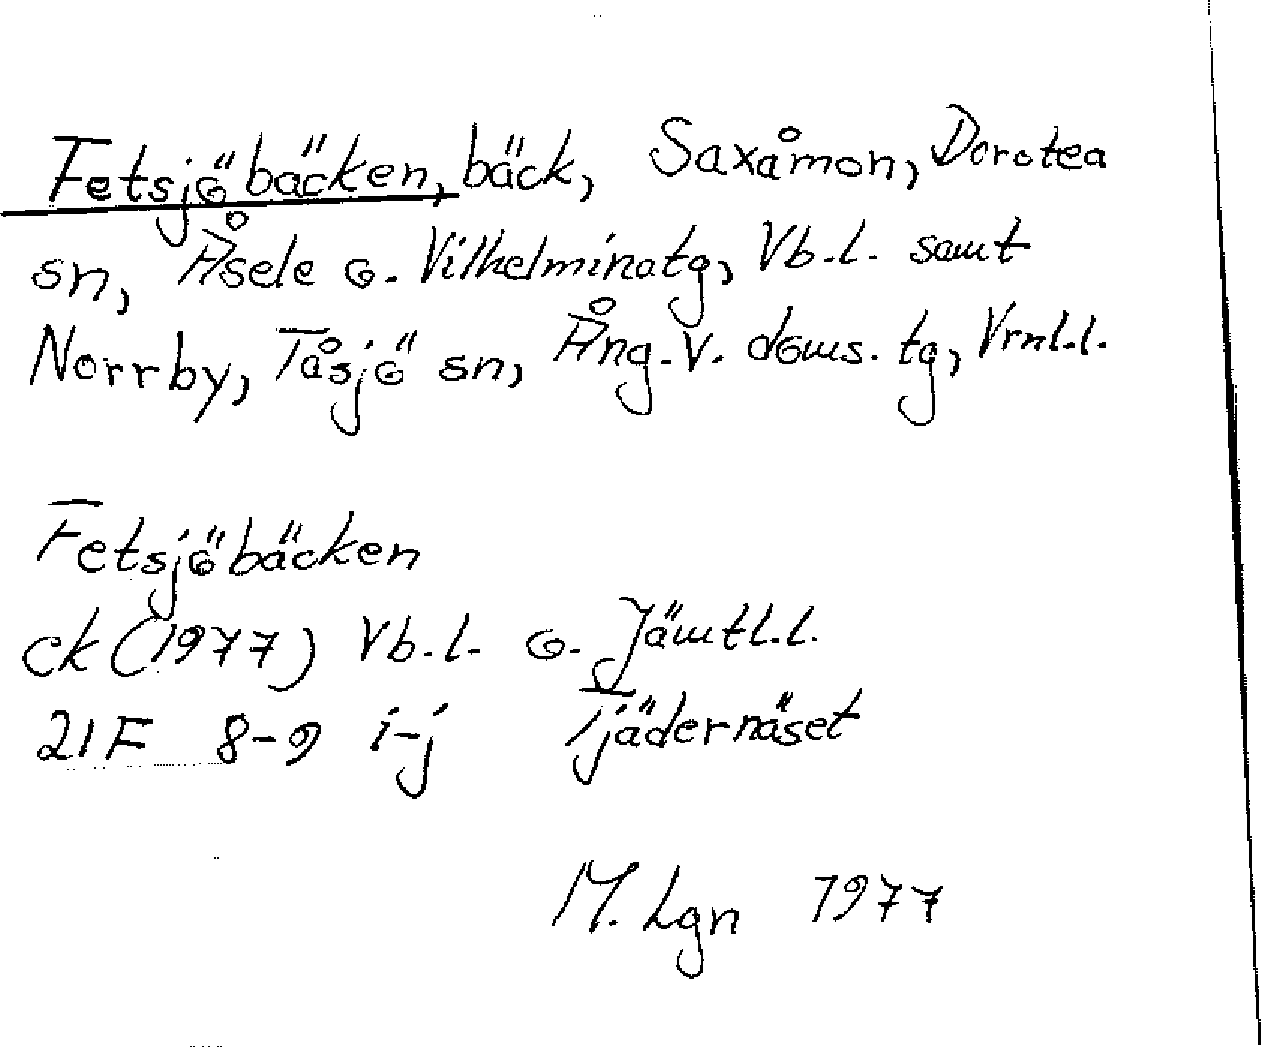 Fetsjöbäcken, bäck, Saxåmon, Dorotea
sn, Åsele o. Vilhelmina tg, Vb.l. samt
Norrby, Tåsjö sn, Ång. V. doms. tg, Vrnl.l.
Fetsjöbäcken
ek (1977) Vb.l. o. Jämtl.l.
21F 8-9 i-j Tjädernäset
M. Lgn 1977